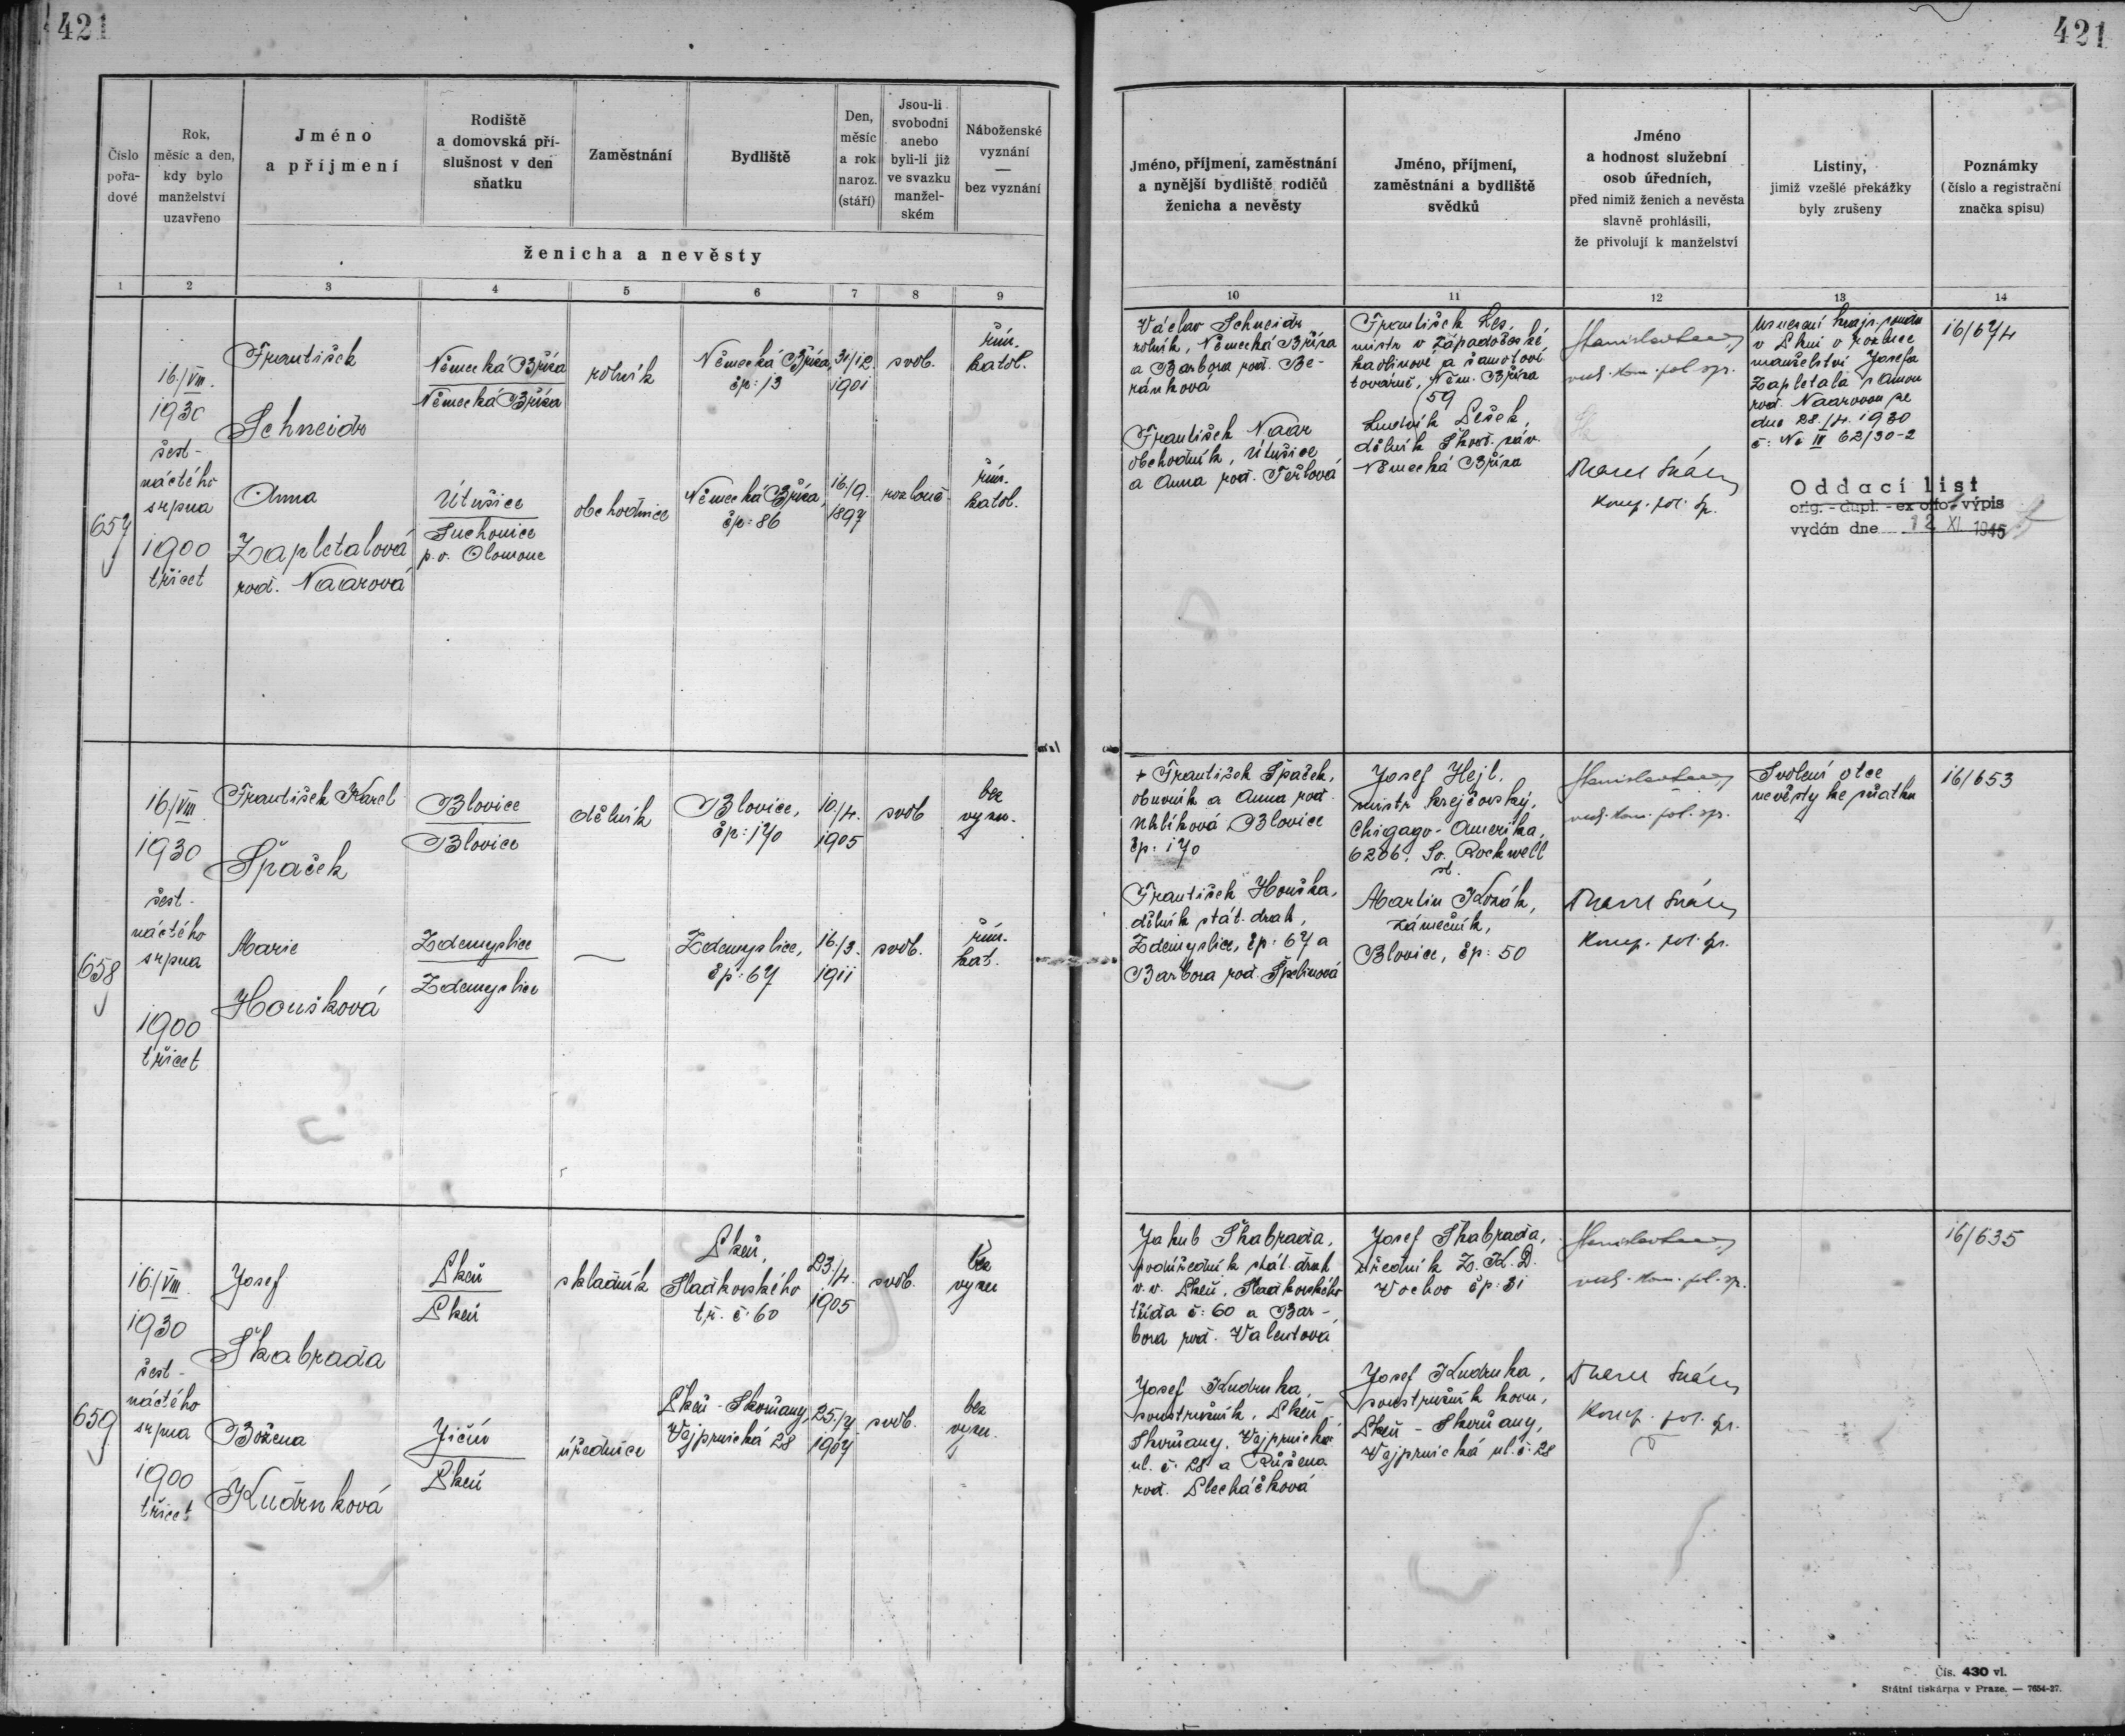 421
421
Číslo
pořa-
dové
Rok,
měsíc a den,
kdy bylo
manželství
uzavřeno
Jméno
a příjmení
Rodiště
a domovská pří-
slušnost v den
sňatku
Zaměstnání
Bydliště
Den,
měsíc
a rok
naroz.
(stáří)
Jsou-li
svobodni
anebo
byli-li již
ve svazku
manžel-
ském
Náboženské
vyznání
—
bez vyznání
ženicha a nevěsty
1 2 3 4 5 6 7 8 9
Jméno, příjmení, zaměstnání
a nynější bydliště rodičů
ženicha a nevěsty
Jméno, příjmení,
zaměstnání a bydliště
svědků
Jméno
a hodnost služební
osob úředních,
před nimiž ženich a nevěsta
slavně prohlásili,
že přivolují k manželství
Listiny,
jimiž vzešlé překážky
byly zrušeny
Poznámky
(číslo a registrační
značka spisu)
10 11 12 13 14
657
16./VIII.
1930
šest-
náctého
srpna
1900
třicet
František
Schneidr
Německá Bříza
Německá Bříza
rolník
Německá Bříza,
čp: 13
31/12.
1901
svob.
řím.
katol.
Anna
Zapletalová
rod. Naarová
Útušice
Suchonice
p. o. Olomouc
obchodnice
Německá Bříza,
čp: 86
16./9.
1897
rozlouč.
řím.
katol.
Václav Schneidr
rolník, Německá Bříza
a Barbora rod. Be-
ránková
František Naar
obchodník, Útušice
a Anna rod. Teřlová
František Les,
mistr v západočeské
kaolinové a šamotové
továrně, Něm. Bříza
59
Ludvík Lešek,
dělník Škod. záv.
Německá Bříza
pol. spr.
v Plzni o rozluce
manželství Josefa
Zapletala s Annou
rod. Naarovou ze
dne 28./4. 1930
č: Nc IV 62/30-2
Oddací list
orig. - dupl. - ex offo - výpis
vydán dne 12 XI. 1945
16/674
658
16/VIII
1930
šest-
náctého
srpna
1900
třicet
František Karel
Špaček
Blovice
Blovice
dělník
Blovice,
čp: 170
10/4.
1905
svob
bez
vyzn.
Marie
Houšková
Zdemyslice
Zdemyslice
—
Zdemyslice,
čp: 67
16./3.
1911
svob.
řím.
kat.
+ František Špaček,
obuvník a Anna rod.
Uhlíková Blovice
čp: 170
František Houška,
dělník stát. drah,
Zdemyslice, čp: 67 a
Barbora rod. Špelinová
Josef Hejl.
mistr krejčovský,
Chigago - Amerika,
6206. So. Rockwell
st.
Martin Kozák,
zámečník,
Blovice, čp: 50
pol. spr.
Svolení otce
nevěsty ke sňatku
16/653
659
16/VIII.
1930
šest-
náctého
srpna
1900
třicet
Josef
Škabrada
Plzeň
Plzeň
skladník
Plzeň,
Sladkovského
tř. č. 60
23./4.
1905
svob.
bez
vyzn
Božena
Kudrnková
Jičín
Plzeň
úřednice
Plzeň - Skvrňany,
Vejprnická 28
25./7
1907
svob.
bez
vyzn.
Jakub Škabrada,
podúředník stát. drah
v. v. Plzeň, Sladkovského
třída č: 60 a Bar-
bora rod. Valentová
Josef Kudrnka,
soustružník, Plzeň
Skvrňany. Vejprnická
ul. č. 28 a Růžena
rod. Plecháčková
Josef Škabrada,
úředník Z. K. D.
Vochov čp: 31
Josef Kudrnka,
soustružník kovu,
Plzeň - Skvrňany,
Vejprnická ul. č: 28
pol. spr.
16/635
Čís. 430 vl.
Státní tiskárna v Praze. — 7654-27.